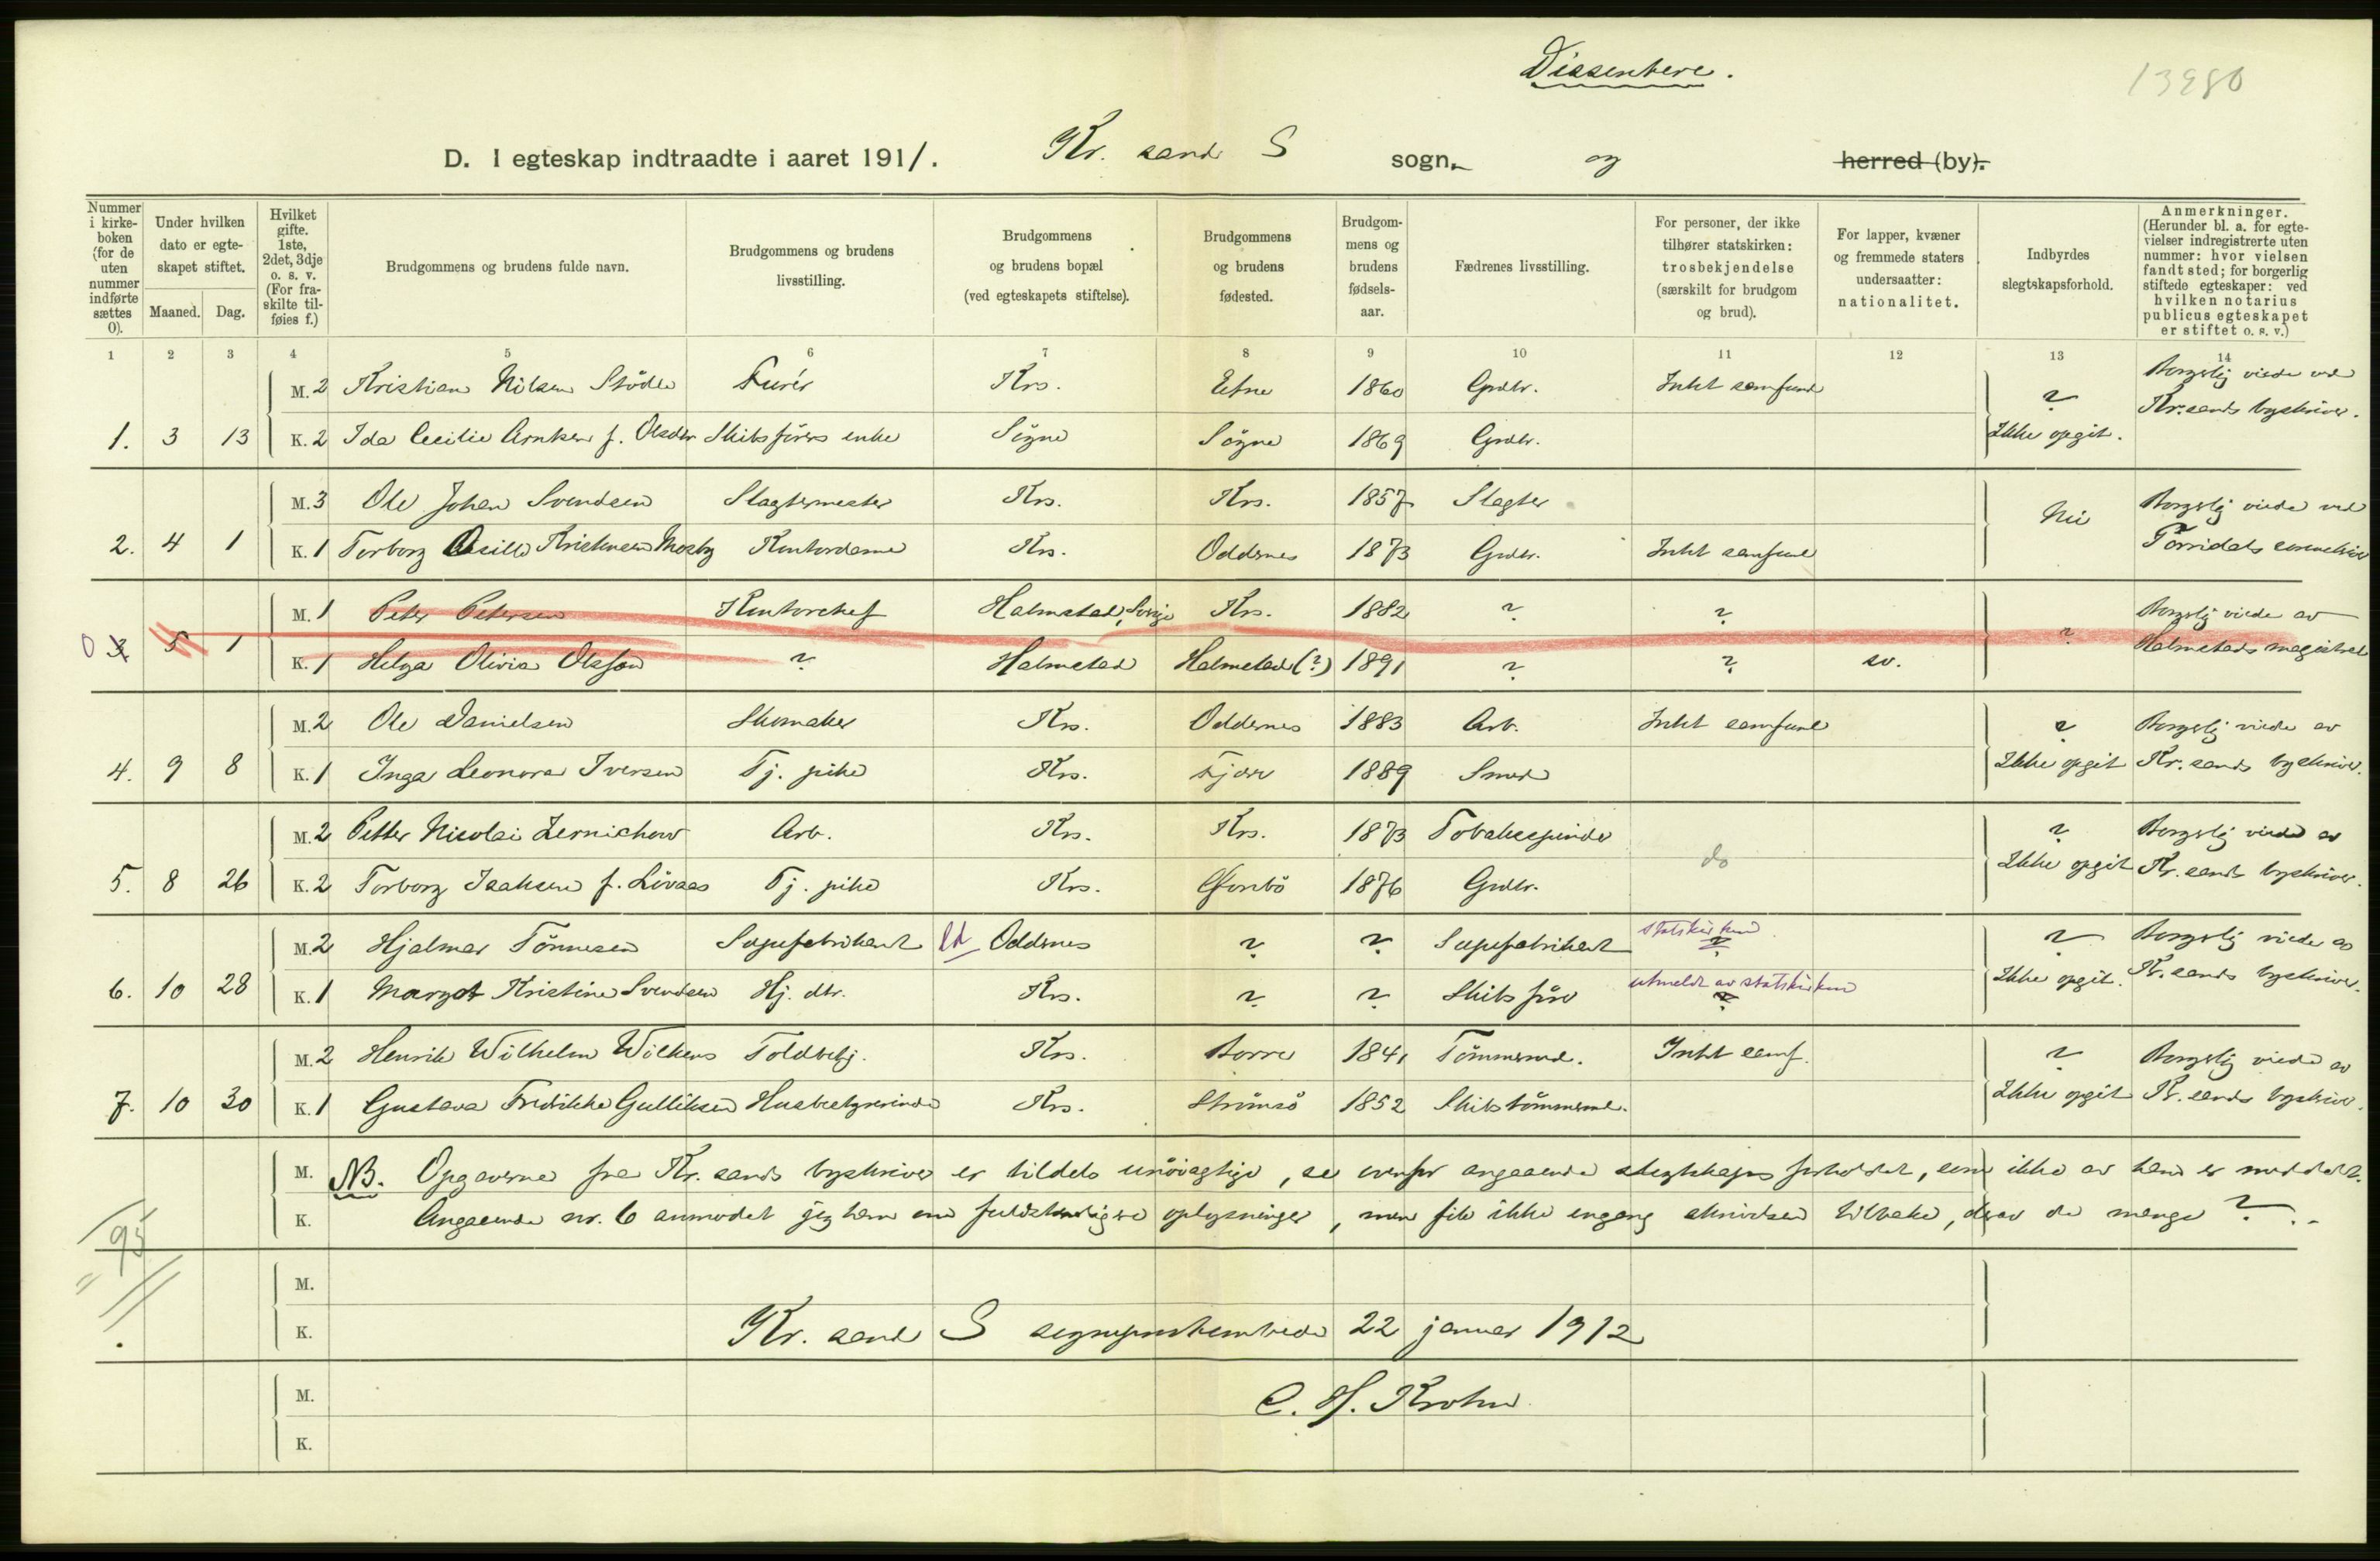 Dissentere.
13980
D. I egteskap indtraadte i aaret 1911. Kr. sand S sogn. og herred (by).
Nummer i kirkeboken (for de uten nummer indførte sættes 0).
Under hvilken dato er egteskapet stiftet.
Maaned. Dag.
Hvilket gifte. 1ste, 2det, 3dje o. s. v. (For fraskilte tilføies f.)
Brudgommens og brudens fulde navn.
Brudgommens og brudens livsstilling.
Brudgommens og brudens bopæl (ved egteskapets stiftelse).
Brudgommens og brudens fødested.
Brudgommens og brudens fødselsaar.
Fædrenes livsstilling.
For personer, der ikke tilhører statskirken: trosbekjendelse (særskilt for brudgom og brud).
For lapper, kvæner og fremmede staters undersaatter: nationalitet.
Indbyrdes slegtskapsforhold.
Anmerkninger. (Herunder bl. a. for egtevielser indregistrerte uten nummer: hvor vielsen fandt sted; for borgerlig stiftede egteskaper: ved hvilken notarius publicus egteskapet er stiftet o. s. v.)
1 2 3 4 5 6 7 8 9 10 11 12 13 14
M. 2 Kristian Nilsen Stödle Furér Krs. Etne 1860 Grdbr. Intet samfund ? Borgerlig viede ved
1. 3 13 K. 2 Ida Cecilie Arntsen f. Olsdtr Skibsförers enke Sögne Sögne 1869 Grdbr. Ikke opgit. Kr.sands byskriver.
M. 3 Ole Johan Svendsen Slagtermester Krs. Krs. 1857 Slagter Nei Borgerlig viede ved
2. 4 1 K. 1 Torborg Osille Kristensen Mosby Kontordame Krs. Oddernes 1873 Grdbr. Intet samfund Torridals sorenskriver
M. 1 Peter Petersen Kontorchef Halmstad, Sverige Krs. 1882 ? ? Borgerlig viede av
0 3 5 1 K. 1 Helga Olivia Olsson ? Halmstad Halmstad (?) 1891 ? ? sv. ? Halmstads magistrat
M. 2 Ole Danielsen Skomaker Krs. Oddernes 1883 Arb. Intet samfund ? Borgerlig viede av
4. 9 8 K. 1 Inga Leonora Iversen Tj. pike Krs. Fjære 1889 Smed Ikke opgit Kr. sands byskriver.
M. 2 Petter Nicolai Zernichow Arb. Krs. Krs. 1873 Tobakspinder do ? Borgerlig viede av
5. 8 26 K. 2 Torborg Isaksen f. Livaas Tj. pike Krs. 1876 Grdbr. Ikke opgit Kr. sands byskriver.
M. 2 Hjalmar Tönnesen Sæpefabrikant Ld Oddernes ? ? Sæpefabrikant statskirken ? ? Borgerlig viede av
6. 10 28 K. 1 Margot Kristine Svendsen Hj. dtr. Krs. ? ? Skibsförer utmeldt av statskirken ? Ikke opgit. Kr. sands byskriver.
M. 2 Henrik Wilhelm Wilkens Toldbetj. Krs. Borre 1841 Tömmermd. Intet samf. ? Borgerlig viede av
7. 10 30 K. 1 Gustava Fredrikke Gulliksen Husbestyrerinde Krs. Strömsö 1852 Skibstömmermd. Ikke opgit Kr. sands byskriver.
M. NB. Opgaverne fra Kr. sands byskriver er tildels unöiagtige, se ovenfor angaaende slegtskapsforholdet, som ikke av ham er meddelt.
K. Angaaende nr. 6 anmodet jeg ham om fuldstændigere oplysninger, men fik ikke engang skrivelsen tilbake, derav de mange ?.
95
M.
K. Kr. sand S sogneprestembede 22 januar 1912
M. C. H. Krohn
K.